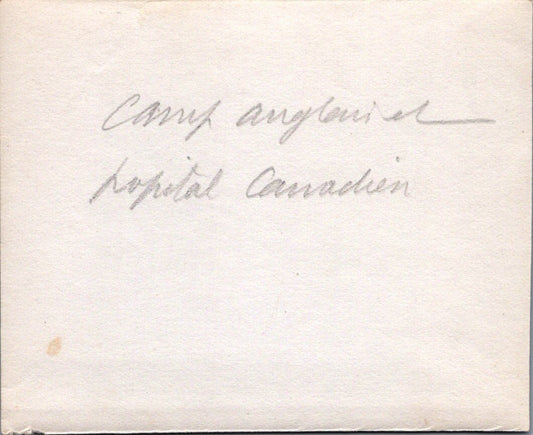 Camp anglais et
hopital Canadien